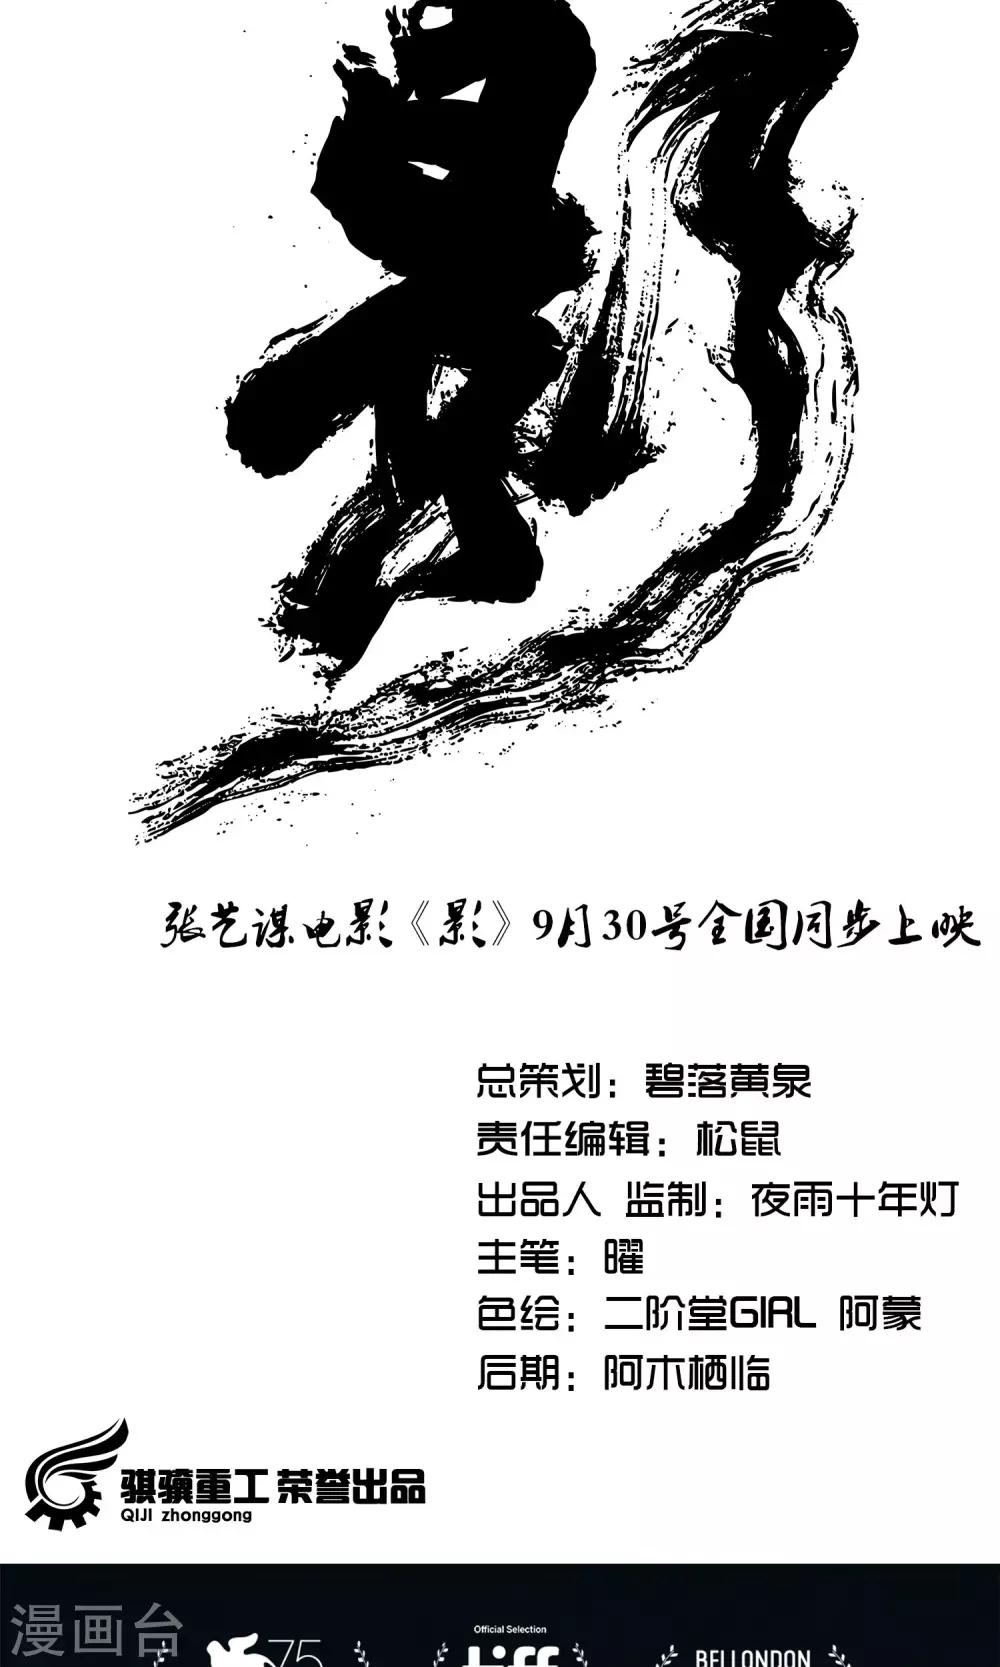 影
张艺谋电影《影》9月30号全国同步上映
总策划：碧落黄泉
责任编辑：松鼠
出品人 监制：夜雨十年灯
主笔：曜
色绘：二阶堂GIRL 阿蒙
后期：阿木栖临
骐骥重工 荣誉出品
QIJI zhonggong
漫画台
75
Official Selection
tiff
BFI LONDON